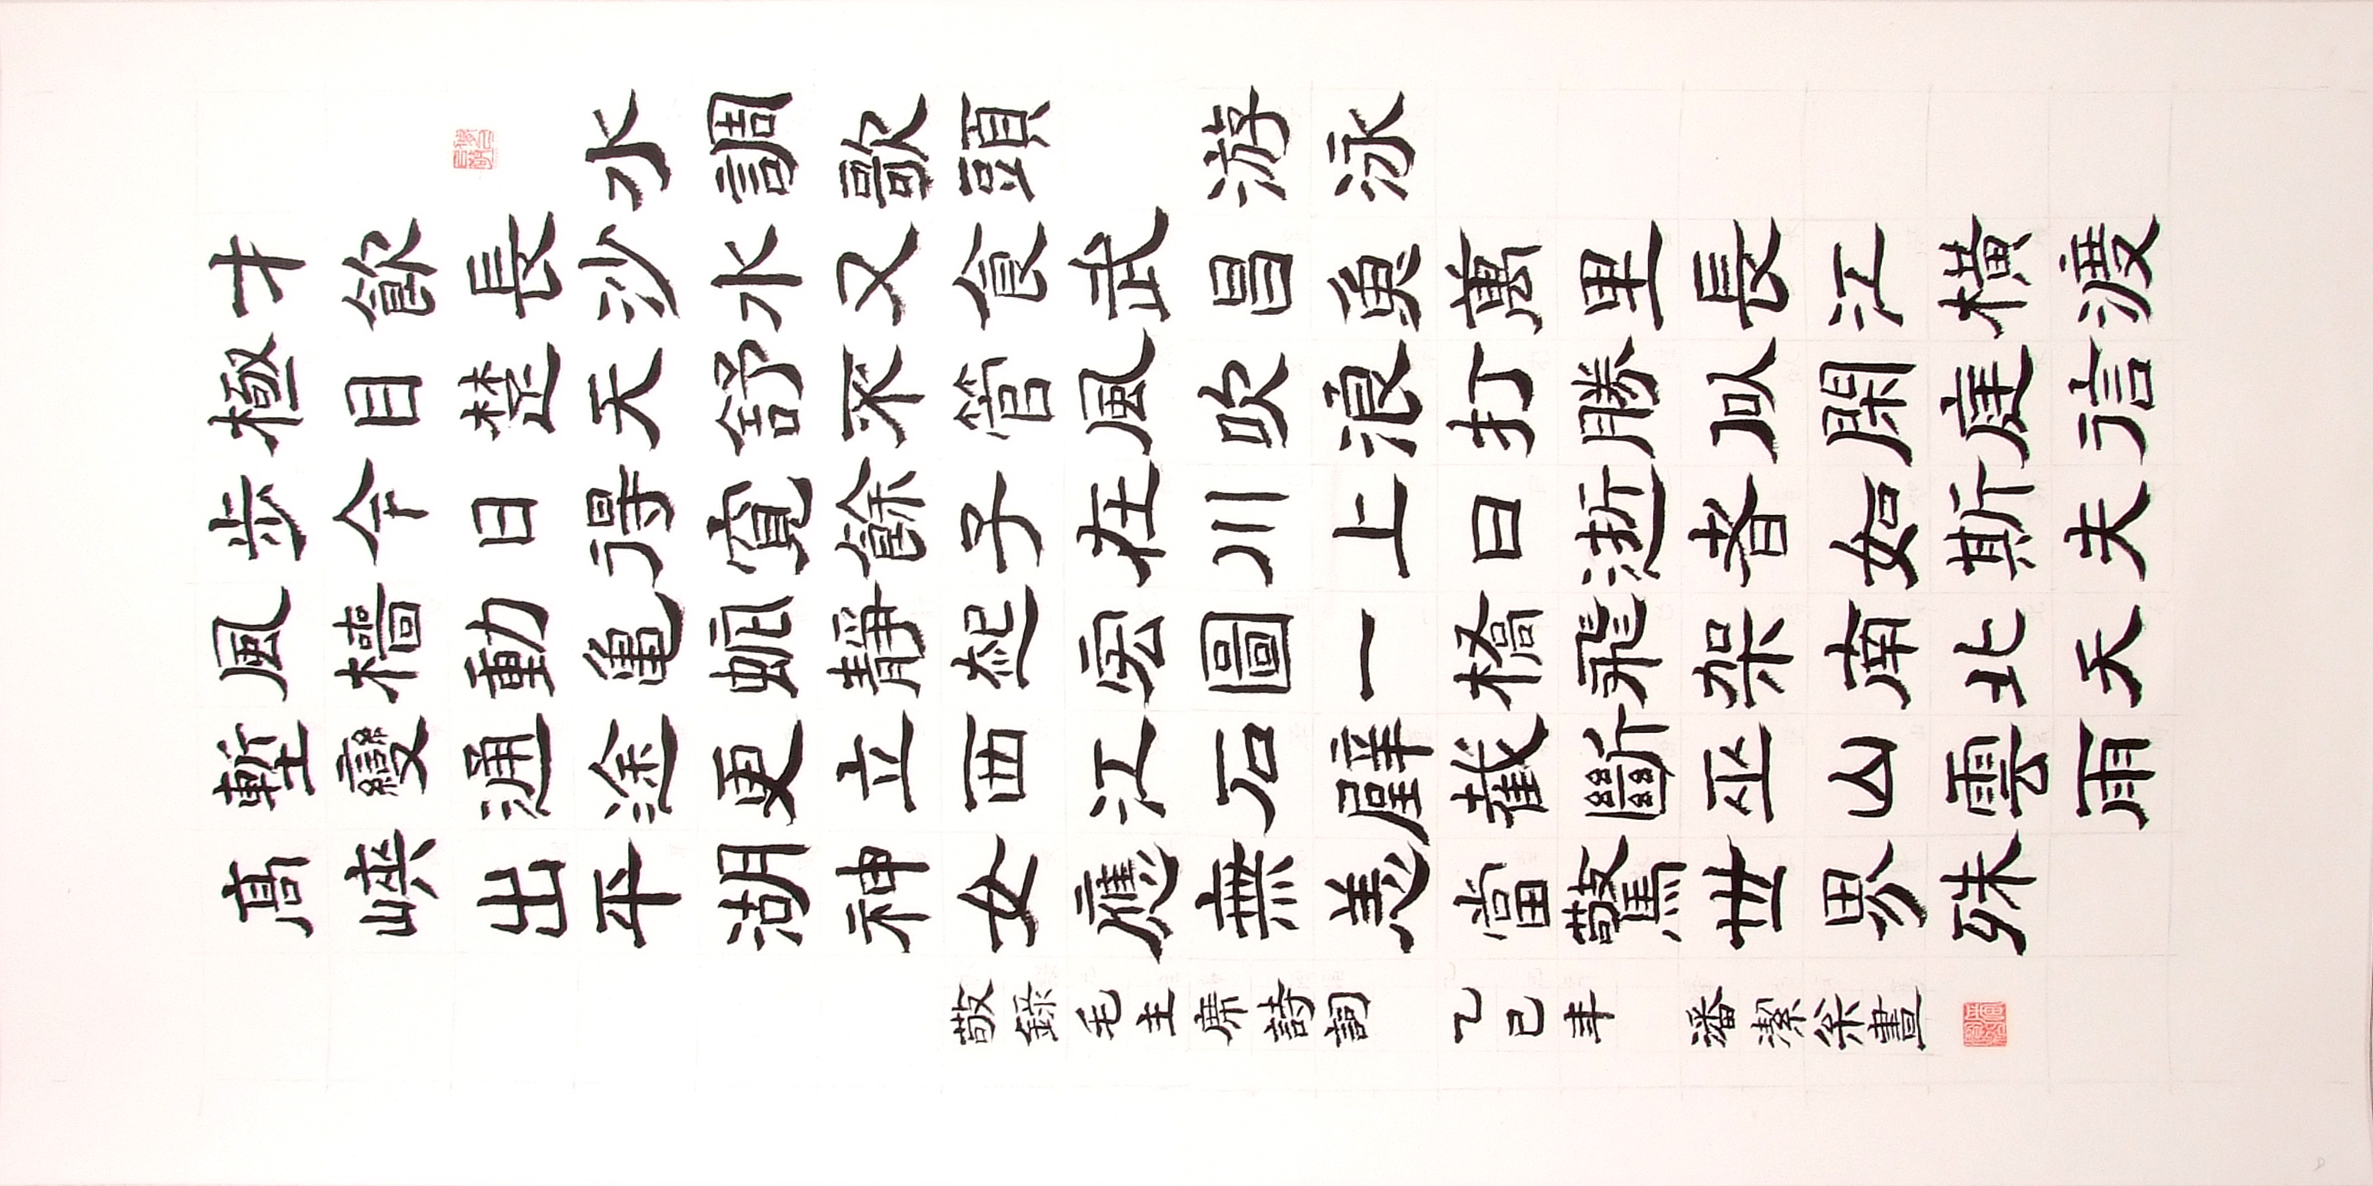 水調歌頭 游泳
才飲長沙水又食武昌魚萬里長江橫渡
極目楚天舒不管風吹浪打勝似閑庭信
步今日得寬餘子在川上曰逝者如斯夫
風檣動龜蛇靜起宏圖一橋飛架南北天
塹變通途更立西江石壁截斷巫山雲雨
高峽出平湖神女應無恙當驚世界殊
敬錄毛主席詩詞 乙巳年 潘潔書